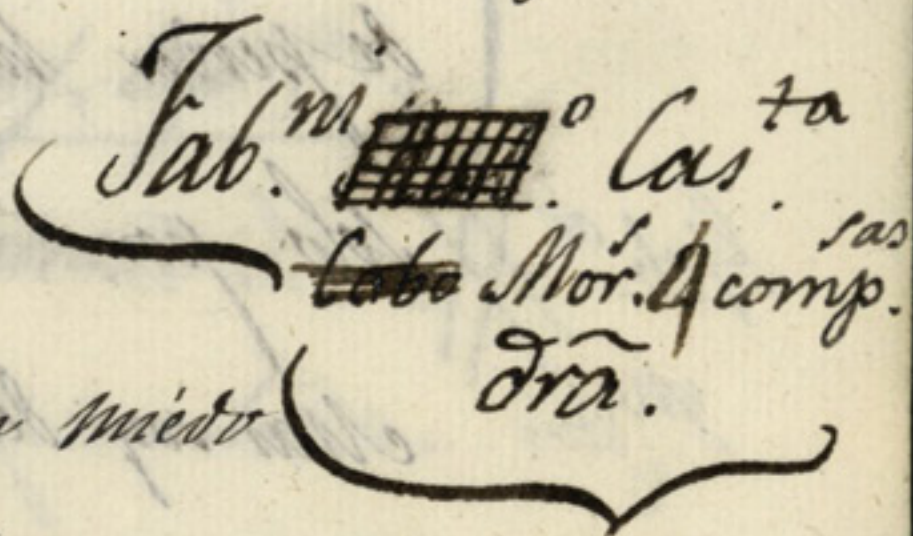 Fab.ⁿⁱ º Cas.ᵗᵃ
Cabo Mor.ˢ 4 comp.ˢᵃˢ
drã.
miedo